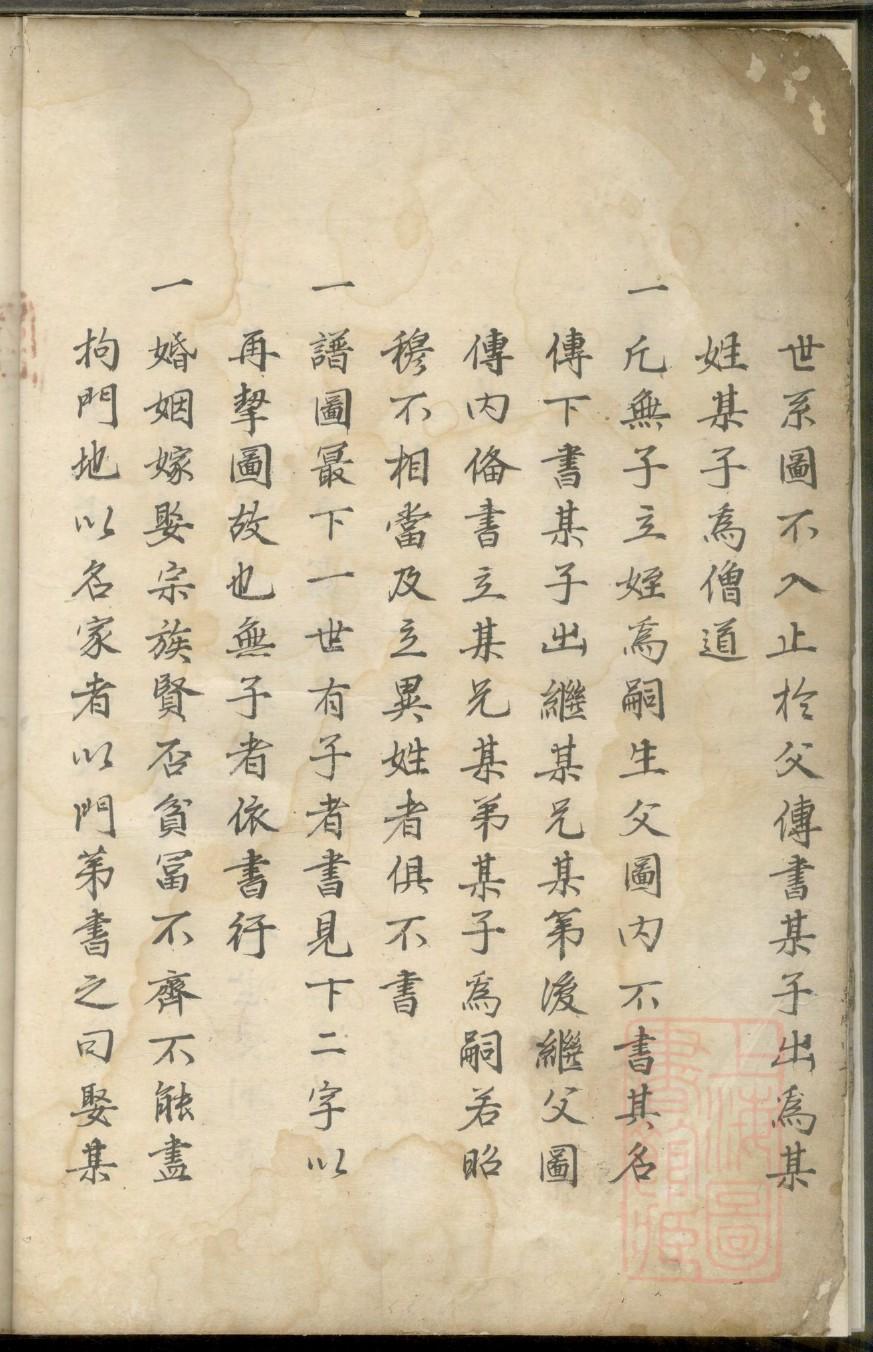 世系圖不入止於父傳書某子出為某
姓某子為僧道
一凢無子立姪爲嗣生父圖内不書其名
傳下書某子出繼某兄某第後繼父圖
傳内俻書立某兄某弟某子爲嗣若昭
穆不相當及立異姓者俱不書
一譜圖㝡下一世有子者書見下二字以
再挈圖故也無子者依書行
一婚姻嫁娶宗族賢否貧冨不齊不能盡
拘門地以名家者以門第書之曰娶某
上海圖書館藏